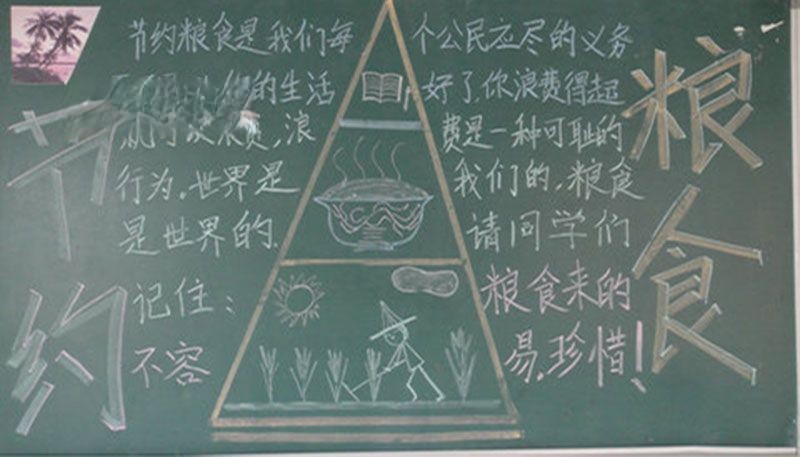 节约
粮食
节约粮食是我们每个公民应尽的义务
的生活好了,你浪费得超
费,浪费是一种可耻的
行为。世界是我们的,粮食
是世界的.请同学们
记住:粮食来的
不容易,珍惜!